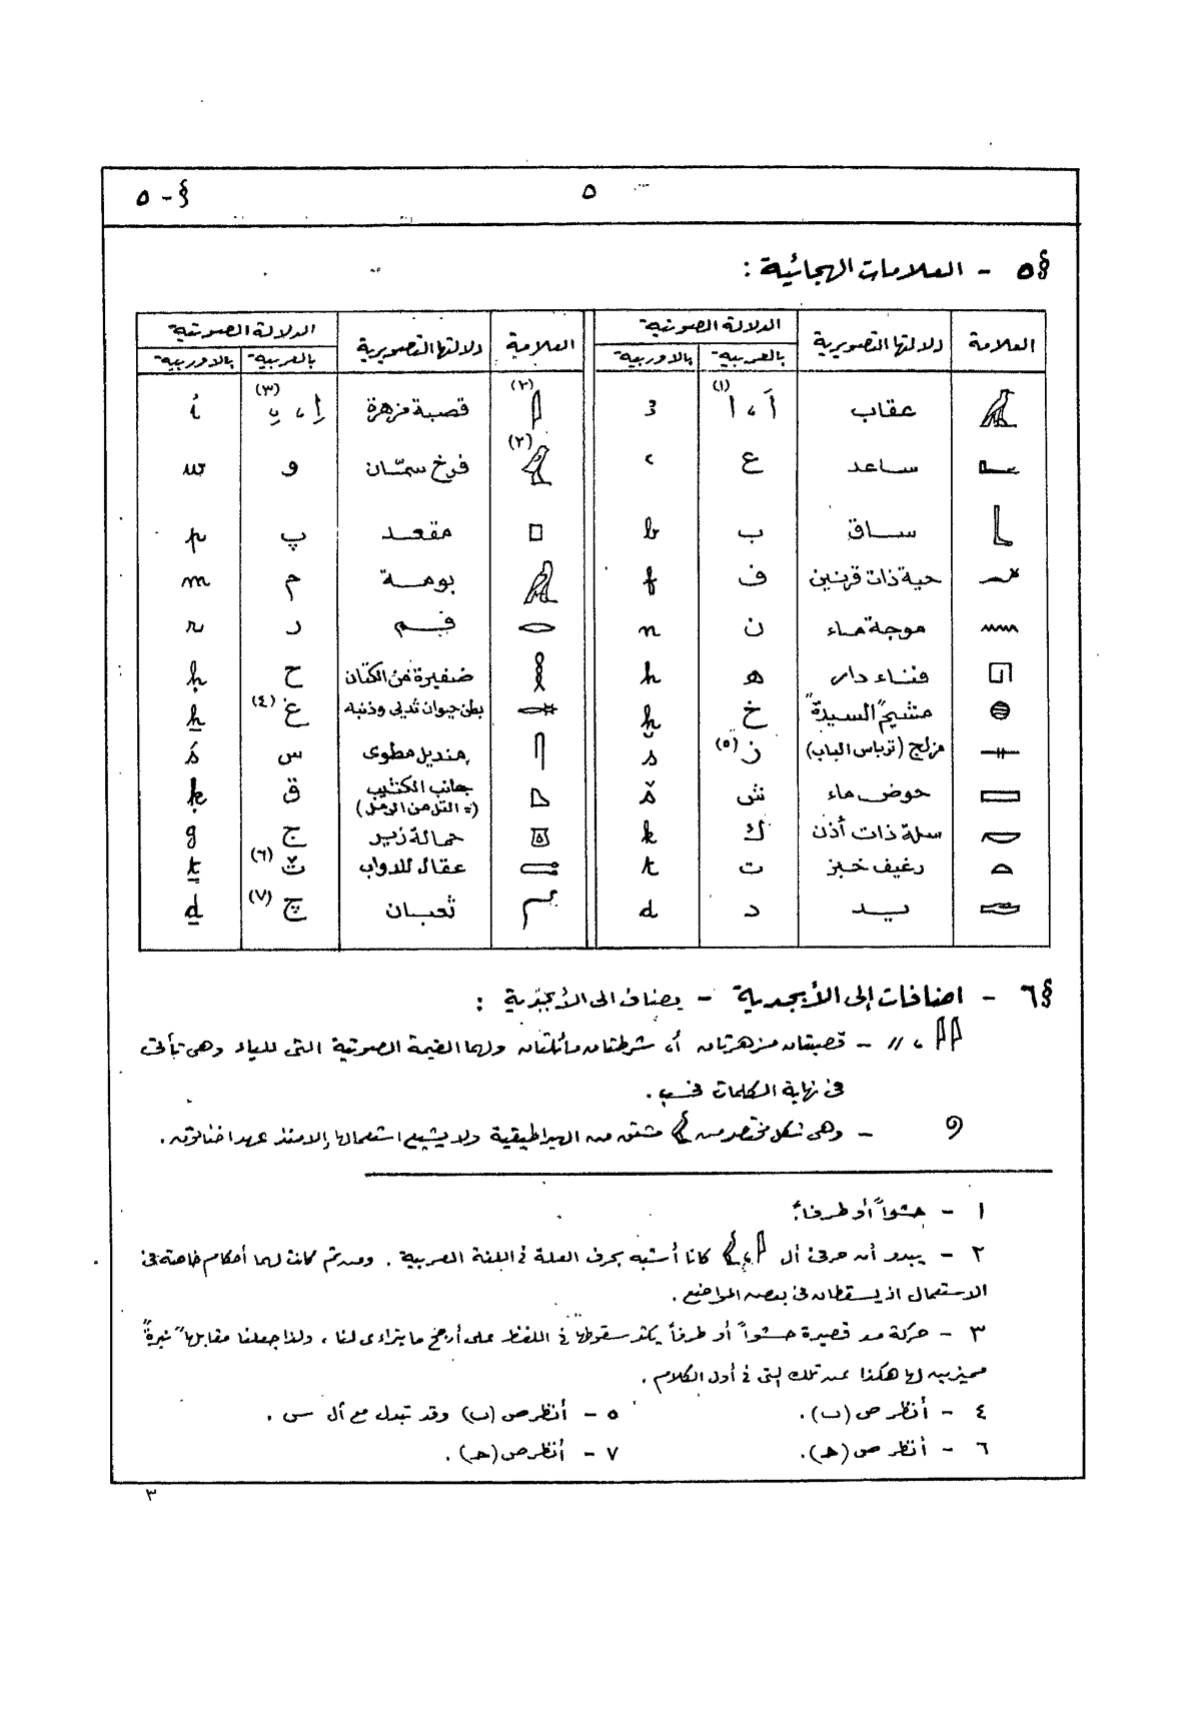 § - ٥
٥
§٥ - العلامات الهجائية :
العلامة | دلالتها التصويرية | الدلالة الصوتية | العلامة | دلالتها التصويرية | الدلالة الصوتية
بالعربية | بالأوربية | بالعربية | بالأوربية
𓄿 | عقاب | أَ ، ا (١) | ꜣ | 𓇋 (٢) | قصبة مزهرة | إ ، ـِ (٣) | ỉ
𓂝 | ساعد | ع | ꜥ | 𓅱 (٢) | فرخ سمّان | و | w
𓃀 | ساق | ب | b | 𓊪 | مقعد | پ | p
𓆑 | حية ذات قرنين | ف | f | 𓅓 | بومة | م | m
𓈖 | موجة ماء | ن | n | 𓂋 | فم | ر | r
𓉔 | فناء دار | ه | h | 𓎛 | ضفيرة من الكتان | ح | ḥ
𓐍 | مشيم "السيدة" | خ | ḫ | 𓄡 | بطن حيوان ثديى وذنبه | غ (٤) | ẖ
𓊃 | مزلج (ترباس الباب) | ز (٥) | s | 𓋴 | منديل مطوى | س | ś
𓈙 | حوض ماء | ش | š | 𓈎 | جانب الكثيب (= التل من الرمل) | ق | ḳ
𓎡 | سلة ذات أذن | ك | k | 𓎼 | حمالة زير | ج | g
𓏏 | رغيف خبز | ت | t | 𓍿 | عقال للدواب | ث (٦) | ṯ
𓂧 | يد | د | d | 𓆓 | ثعبان | چ (٧) | ḏ
§٦ - اضافات إلى الأبجدية - يضاف الى الأبجدية :
𓇋𓇋 ، \\ - قصبتان مزهرتان أو شرطتان مائلتان ولهما القيمة الصوتية التى للياء وهى تأتى
فى نهاية الكلمات فحسب .
𓏲 - وهى شكل مختصر من 𓅱 مشتق من الهيراطيقية ولا يشيع استعمالها إلا منذ عهد اخناتون .
١ - حشواً أو طرفاً.
٢ - يبدو أن حرفى أل 𓇋 ، 𓅱 كانا أشبه بحرف العلة فى اللغة العربية . ومن ثم كانت لهما أحكام خاصة فى
الاستعمال اذ يسقطان فى بعض المواضع .
٣ - حركة مد قصيرة حشواً أو طرفاً يكثر سقوطها فى اللفظ على أرجح ما يتراءى لنا ، ولذا جعلنا مقابلها "نبرة"
مميزين لها هكذا عن تلك التى فى أول الكلام .
٤ - أنظر ص (ب).
٥ - أنظر ص (ب) وقد تبدل مع أل س .
٦ - أنظر ص (ﺣ).
٧ - أنظر ص (ﺣ) .
٣